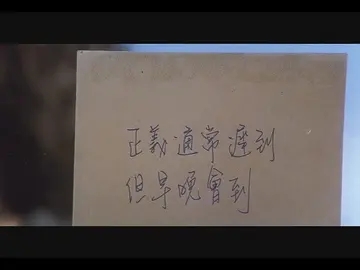 正義通常遲到
但早晚會到